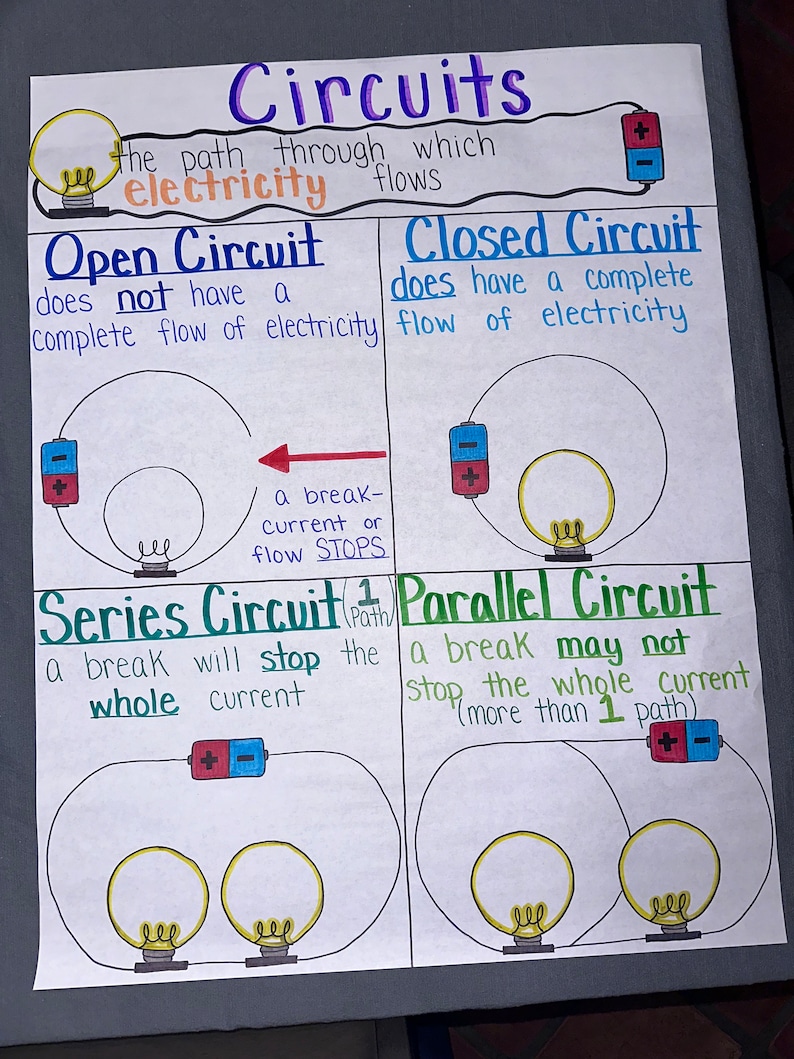 Circuits
the path through which
electricity flows
+
-
Open Circuit
does not have a
complete flow of electricity
-
+
a break-
current or
flow STOPS
Closed Circuit
does have a complete
flow of electricity
-
+
Series Circuit (1 Path)
a break will stop the
whole current
+ -
Parallel Circuit
a break may not
stop the whole current
(more than 1 path)
+ -